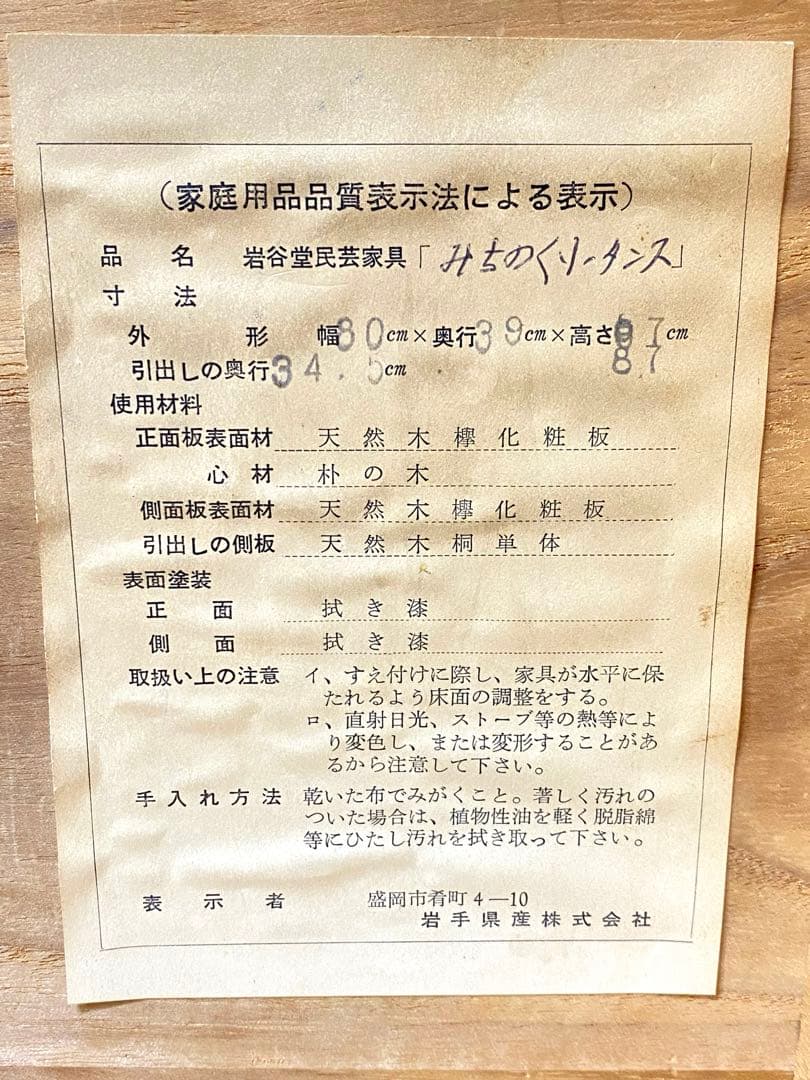 （家庭用品品質表示法による表示）
品名 岩谷堂民芸家具「みちのくリータンス」
寸法
外形 幅80cm×奥行39cm×高さ 7cm
引出しの奥行34.5cm 87
使用材料
正面板表面材 天然木欅化粧板
心材 朴の木
側面板表面材 天然木欅化粧板
引出しの側板 天然木桐単体
表面塗装
正面 拭き漆
側面 拭き漆
取扱い上の注意 イ、すえ付けに際し、家具が水平に保
たれるよう床面の調整をする。
ロ、直射日光、ストーブ等の熱等によ
り変色し、または変形することがあ
るから注意して下さい。
手入れ方法 乾いた布でみがくこと。著しく汚れの
ついた場合は、植物性油を軽く脱脂綿
等にひたし汚れを拭き取って下さい。
表示者 盛岡市肴町4―10
岩手県産株式会社